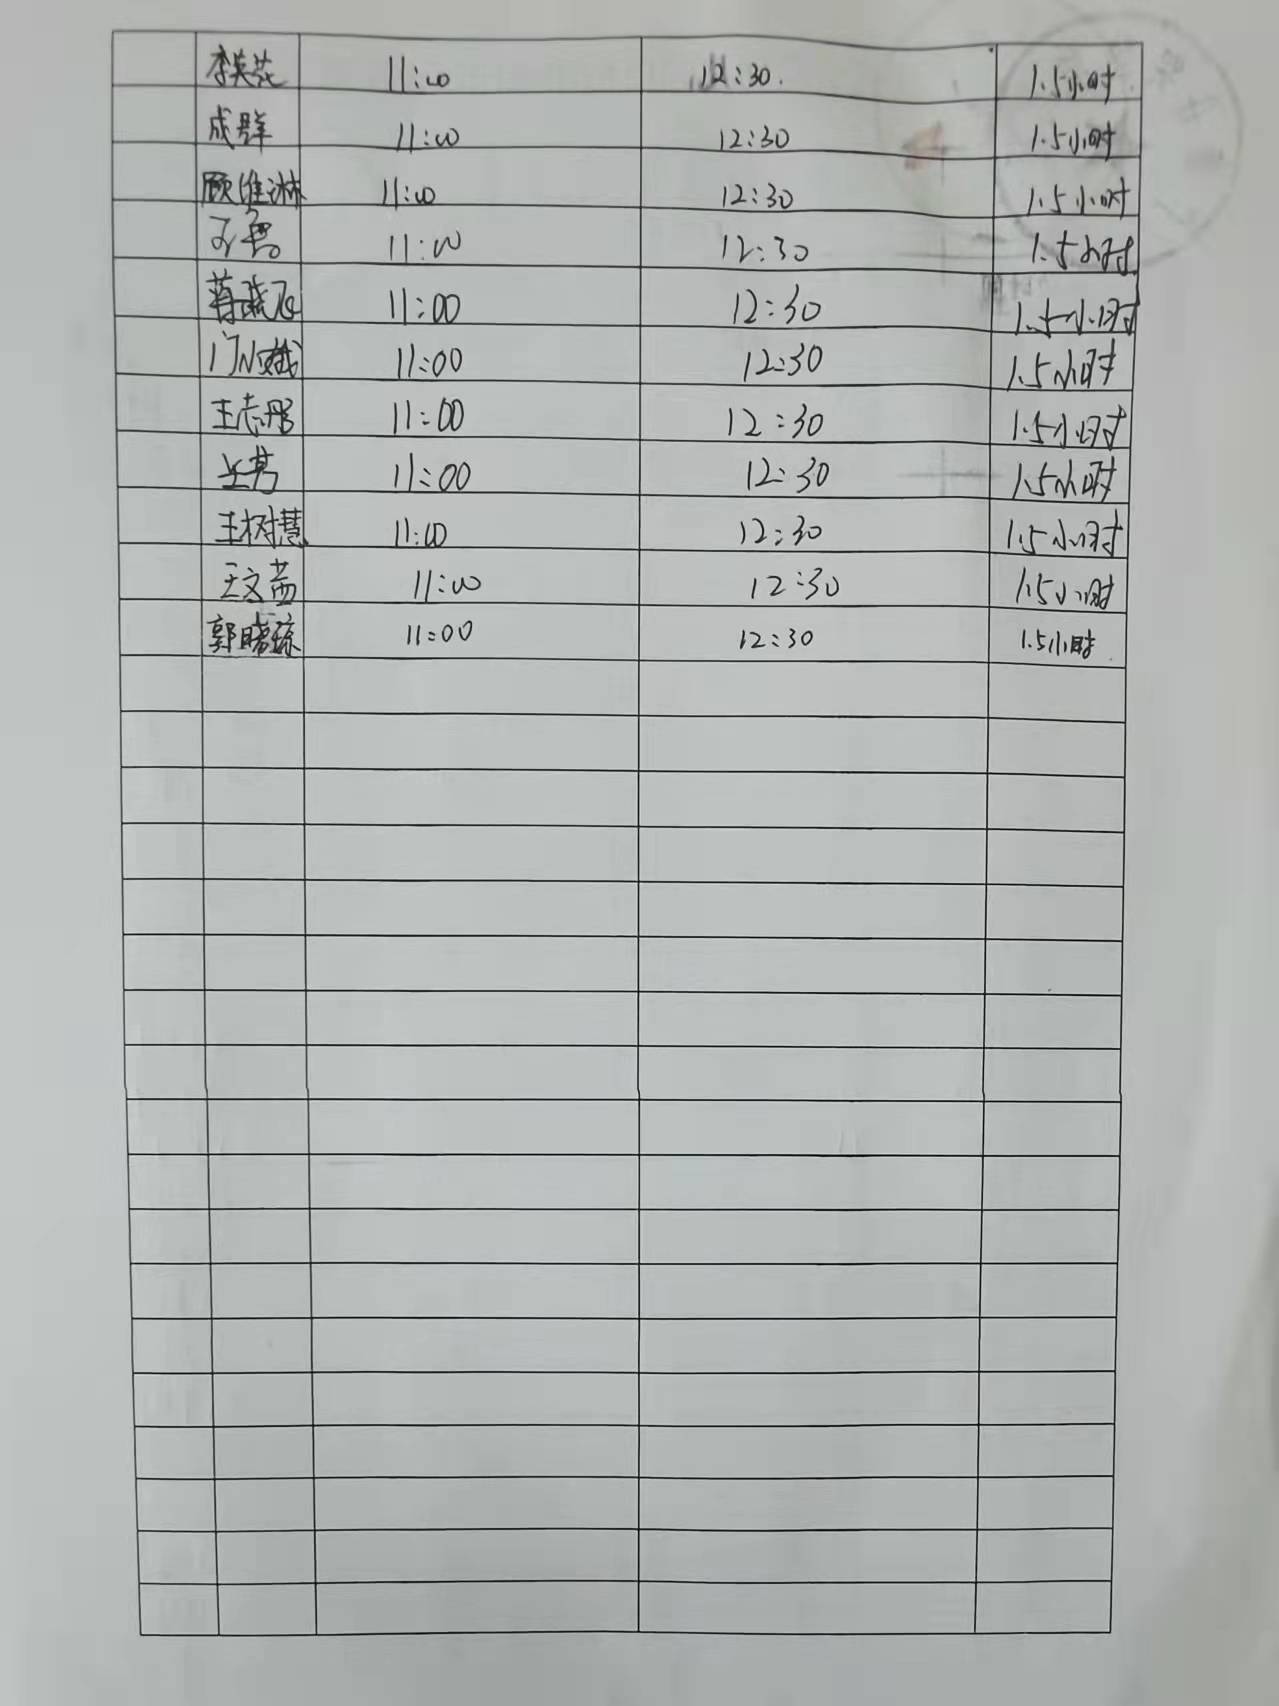 李英花 11:00 12:30. 1.5小时.
成群 11:00 12:30 1.5小时
顾维淋 11:00 12:30 1.5小时
11:00 12:30 1.5小时
蒋晓飞 11:00 12:30 1.5小时
门小娥 11:00 12:30 1.5小时
王志彤 11:00 12:30 1.5小时
11:00 12:30 1.5小时
王树慧 11:00 12:30 1.5小时
王文 11:00 12:30 1.5小时
郭晓琼 11:00 12:30 1.5小时.